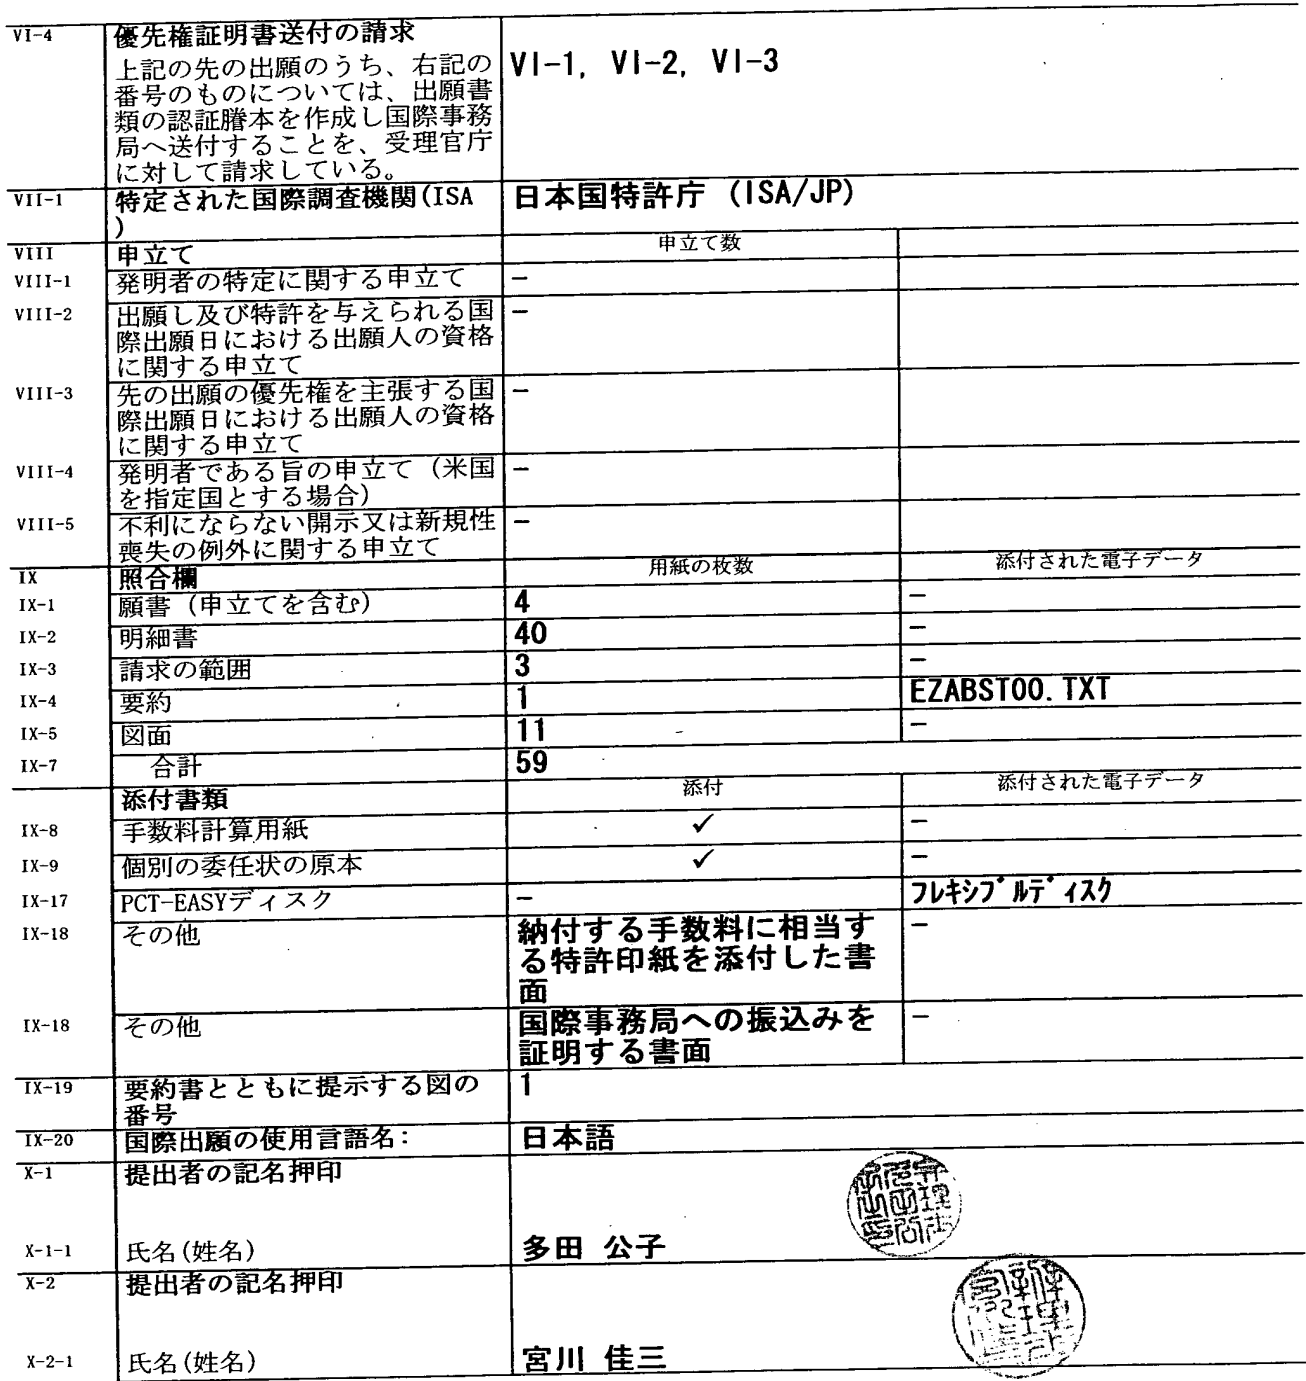 VI-4 優先権証明書送付の請求
上記の先の出願のうち、右記の VI-1, VI-2, VI-3
番号のものについては、出願書
類の認証謄本を作成し国際事務
局へ送付することを、受理官庁
に対して請求している。
VII-1 特定された国際調査機関(ISA 日本国特許庁 (ISA/JP)
)
VIII 申立て 申立て数
VIII-1 発明者の特定に関する申立て -
VIII-2 出願し及び特許を与えられる国 -
際出願日における出願人の資格
に関する申立て
VIII-3 先の出願の優先権を主張する国 -
際出願日における出願人の資格
に関する申立て
VIII-4 発明者である旨の申立て（米国 -
を指定国とする場合）
VIII-5 不利にならない開示又は新規性 -
喪失の例外に関する申立て
IX 照合欄 用紙の枚数 添付された電子データ
IX-1 願書（申立てを含む） 4 -
IX-2 明細書 40 -
IX-3 請求の範囲 3 -
IX-4 要約 1 EZABST00.TXT
IX-5 図面 11 -
IX-7 合計 59
添付書類 添付 添付された電子データ
IX-8 手数料計算用紙 ✓ -
IX-9 個別の委任状の原本 ✓ -
IX-17 PCT-EASYディスク - フレキシブルディスク
IX-18 その他 納付する手数料に相当す -
る特許印紙を添付した書
面
IX-18 その他 国際事務局への振込みを -
証明する書面
IX-19 要約書とともに提示する図の 1
番号
IX-20 国際出願の使用言語名： 日本語
X-1 提出者の記名押印
X-1-1 氏名(姓名) 多田 公子
X-2 提出者の記名押印
X-2-1 氏名(姓名) 宮川 佳三